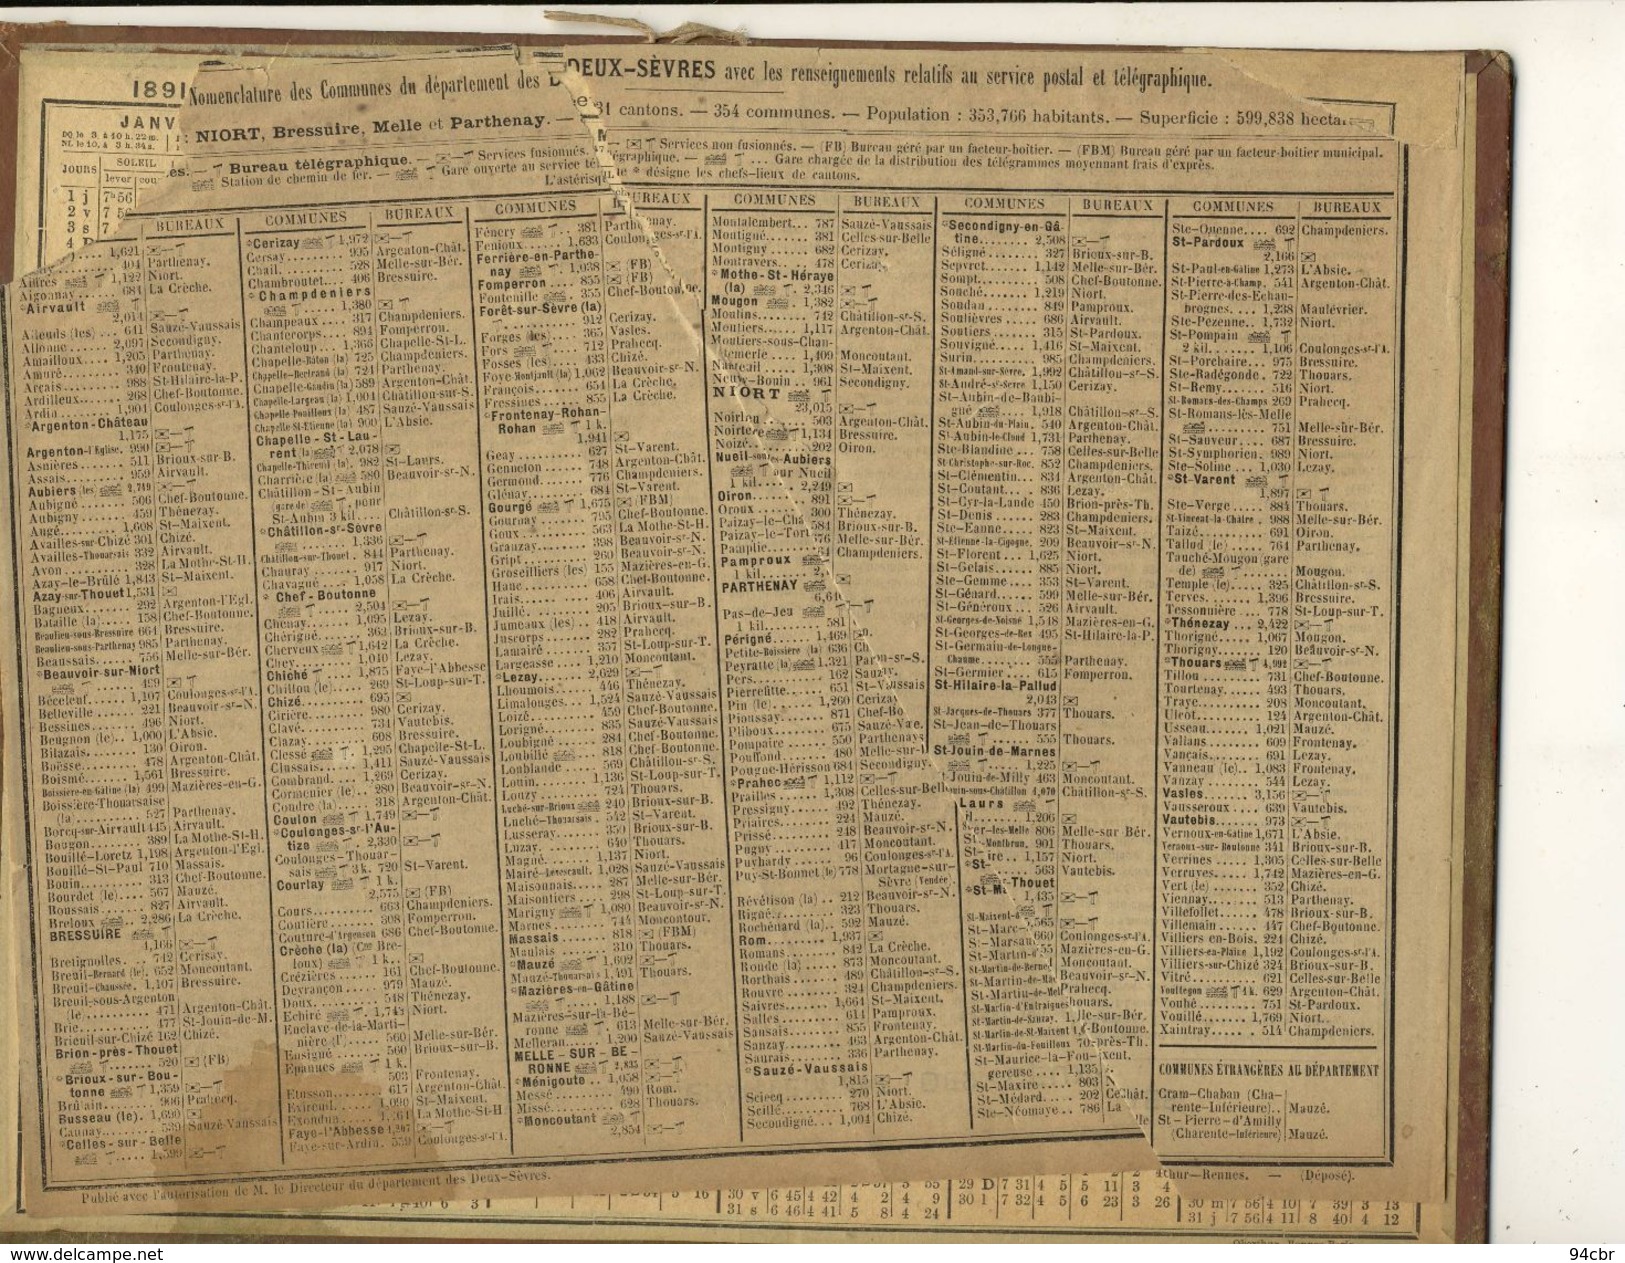 1891
JANV
JOURS SOLEIL
lever cou
1 j 7 56
2 v 7 56
3 s 7
Nomenclature des Communes du département des DEUX-SÈVRES avec les renseignements relatifs au service postal et télégraphique.
: NIORT, Bressuire, Melle et Parthenay. — 31 cantons. — 354 communes. — Population : 353,766 habitants. — Superficie : 599,838 hecta
Bureau télégraphique. — Services fusionnés. Services non fusionnés. — (FB) Bureau géré par un facteur-boîtier. — (FBM) Bureau géré par un facteur-boîtier municipal.
Station de chemin de fer. — Gare ouverte au service té égraphique. — ... Gare chargée de la distribution des télégrammes moyennant frais d'exprès.
L'astérisq * désigne les chefs-lieux de cantons.
BUREAUX
1,621
404 Parthenay.
1,122 Niort.
Aigonnay 684 La Crèche.
*Airvault
2,014
Alleuds (les) 641 Sauzé-Vaussais
Allonne 2,097 Secondigny.
Amailloux 1,205 Parthenay.
Amuré 340 Frontenay.
Arçais 988 St-Hilaire-la-P.
Ardilleux 268 Chef-Boutonne.
Ardin 1,904 Coulonges-sr-l'A.
*Argenton-Château
1,175
Argenton-l'Eglise. 990
Asnières 511 Brioux-sur-B.
Assais 959 Airvault.
Aubiers (les) 2,749
Aubigné 506 Chef-Boutonne.
Aubigny 459 Thénezay.
Augé 1,608 St-Maixent.
Availles-sur-Chizé 301 Chizé.
Availles-Thouarsais 332 Airvault.
Avon 328 La Mothe-St-H.
Azay-le-Brûlé 1,843 St-Maixent.
Azay-sur-Thouet 1,531
Bagneux 292 Argenton-l'Egl.
Bataille (la) 158 Chef-Boutonne.
Beaulieu-sous-Bressuire 664 Bressuire.
Beaulieu-sous-Parthenay 985 Parthenay.
Beaussais 756 Melle-sur-Bér.
*Beauvoir-sur-Niort
459
Béceleuf 1,107 Coulonges-sr-l'A.
Belleville 221 Beauvoir-sr-N.
Bessines 496 Niort.
Beugnon (le) 1,000 L'Absie.
Bilazais 130 Oiron.
Boësse 478 Argenton-Chât.
Boismé 1,561 Bressuire.
Boissière-en-Gâtine (la) 499 Mazières-en-G.
Boissière-Thouarsaise
(la) 527 Parthenay.
Borcq-sur-Airvault 445 Airvault.
Bougon 389 La Mothe-St-H.
Bouillé-Loretz 1,198 Argenton-l'Egl.
Bouillé-St-Paul 710 Massais.
Bouin 313 Chef-Boutonne.
Bourdet (le) 567 Mauzé.
Boussais 827 Airvault.
Breloux 2,286 La Crèche.
BRESSUIRE
4,166
Bretignolles 742 Cerisay.
Breuil-Bernard (le) 652 Moncoutant.
Breuil-Chaussée 1,107 Bressuire.
Breuil-sous-Argenton
(le) 471 Argenton-Chât.
Brie 477 St-Jouin-de-M.
Brieuil-sur-Chizé 162 Chizé.
Brion-près-Thouet
520 (FB)
*Brioux-sur-Bou-
tonne 1,359
Brûlain 906 Prahecq.
Busseau (le) 1,690
Caunay 539 Sauzé-Vaussais
*Celles-sur-Belle
1,599
COMMUNES BUREAUX
*Cerizay 1,972
Cersay 995 Argenton-Chât.
Chail 528 Melle-sur-Bér.
Chambroutet 406 Bressuire.
*Champdeniers
1,380
Champeaux 317 Champdeniers.
Chantecorps 894 Fomperron.
Chanteloup 1,366 Chapelle-St-L.
Chapelle-Bâton (la) 725 Champdeniers.
Chapelle-Bertrand (la) 724 Parthenay.
Chapelle-Gaudin (la) 589 Argenton-Chât.
Chapelle-Largeau (la) 1,004 Châtillon-sur-S.
Chapelle-Pouilloux (la) 487 Sauzé-Vaussais
Chapelle-St-Etienne (la) 900 L'Absie.
Chapelle-St-Lau-
rent (la) 2,078
Chapelle-Thireuil (la) 982 St-Laurs.
Charrière (la) 580 Beauvoir-sr-N.
Châtillon-St-Aubin
(gare de) pour
St-Aubin 3 kil. Châtillon-sr-S.
*Châtillon-sr-Sèvre
1,336
Châtillon-sur-Thouet 844 Parthenay.
Chauray 917 Niort.
Chavagné 1,058 La Crèche.
*Chef-Boutonne
2,504
Chenay 1,095 Lezay.
Chérigné 363 Brioux-sur-B.
Cherveux 1,642 La Crèche.
Chey 1,040 Lezay.
Chiché 1,875 Faye-l'Abbesse
Chillou (le) 269 St-Loup-sur-T.
Chizé 695
Cirière 980 Cerizay.
Clavé 734 Vautebis.
Clazay 608 Bressuire.
Clessé 1,295 Chapelle-St-L.
Clussais 1,411 Sauzé-Vaussais
Combrand 1,269 Cerizay.
Cormenier (le) 280 Beauvoir-sr-N.
Coudre (la) 318 Argenton-Chât.
Coulon 1,749
*Coulonges-sr-l'Au-
tize 2,330
Coulonges-Thouar-
sais 3k. 720 St-Varent.
Courlay 1 k.
2,575 (FB)
Cours 663 Champdeniers.
Coutière 308 Fomperron.
Couture-d'Argenson 686 Chef-Boutonne.
Crèche (la) (Cne Bre-
loux) 1 k.
Crézières 161 Chef-Boutonne.
Deyrançon 979 Mauzé.
Doux 548 Thénezay.
Echiré 1,743 Niort.
Enclave-de-la-Marti-
nière (l') 560 Melle-sur-Bér.
Ensigné 560 Brioux-sur-B.
Epannes 1 k.
503 Frontenay.
Etusson 617 Argenton-Chât.
Exireuil 1,090 St-Maixent.
Exoudun La Mothe-St-H
Faye-l'Abbesse 1,207
Faye-sur-Ardin 559 Coulonges-sr-l'A.
COMMUNES
Fénery 381 Parthenay.
Fenioux 1,633 Coulonges-sr-l'A.
Ferrière-en-Parthe-
nay 1,038 (FB)
Fomperron 855 (FB)
Fontenille 355 Chef-Boutonne.
Forêt-sur-Sèvre (la)
912 Cerizay.
Forges (les) 365 Vasles.
Fors 712 Prahecq.
Fosses (les) 433 Chizé.
Foye-Montjault (la) 1,062 Beauvoir-sr-N.
François 654 La Crèche.
Fressines 855 La Crèche.
*Frontenay-Rohan-
Rohan 1 k.
1,941
Geay 627 St-Varent.
Genneton 748 Argenton-Chât.
Germond 776 Champdeniers.
Glénay 684 St-Varent.
Gourgé 1,675 (FBM)
Gournay 795 Chef-Boutonne.
Goux 563 La Mothe-St-H.
Granzay 398 Beauvoir-sr-N.
Gript 260 Beauvoir-sr-N.
Groseilliers (les) 155 Mazières-en-G.
Hanc 658 Chef-Boutonne.
Irais 406 Airvault.
Juillé 205 Brioux-sur-B.
Jumeaux (les) 418 Airvault.
Juscorps 282 Prahecq.
Lamairé 357 St-Loup-sur-T.
Largeasse 1,210 Moncoutant.
*Lezay 2,629
Lhoumois 446 Thénezay.
Limalonges 1,524 Sauzé-Vaussais
Loizé 459 Chef-Boutonne.
Lorigné 835 Sauzé-Vaussais
Loubigné 284 Chef-Boutonne.
Loubillé 818 Chef-Boutonne.
Loublande 569 Châtillon-sr-S.
Louin 1,136 St-Loup-sur-T.
Louzy 724 Thouars.
Luché-sur-Brioux 240 Brioux-sur-B.
Luché-Thouarsais 542 St-Varent.
Lusseray 350 Brioux-sur-B.
Luzay 640 Thouars.
Magné 1,137 Niort.
Mairé-Levescault 1,028 Sauzé-Vaussais
Maisonnais 287 Melle-sur-Bér.
Maisontiers 298 St-Loup-sur-T.
Marigny 1,080 Beauvoir-sr-N.
Marnes 744 Moncontour.
Massais 818 (FBM)
Maulais 310 Thouars.
*Mauzé 1,602
Mauzé-Thouarsais 1,491 Thouars.
*Mazières-en-Gâtine
1,188
Mazières-sur-la-Bé-
ronne 613 Melle-sur-Bér.
Melleran 1,200 Sauzé-Vaussais
MELLE-SUR-BE-
RONNE 2,835
*Ménigoute 1,058
Messé 490 Rom.
Missé 628 Thouars.
*Moncoutant
2,854
COMMUNES BUREAUX
Montalembert 787 Sauzé-Vaussais
Montigné 381 Celles-sur-Belle
Montigny 682 Cerizay.
Montravers 478 Cerizay.
*Mothe-St-Héraye
(la) 2,346
Mougon 1,382
Moulins 742 Châtillon-sr-S.
Moutiers 1,117 Argenton-Chât.
Moutiers-sous-Chan-
temerle 1,409 Moncoutant.
Nanteuil 1,308 St-Maixent.
Neuvy-Bouin 961 Secondigny.
NIORT
23,015
Noirlieu 503 Argenton-Chât.
Noirterre 1,134 Bressuire.
Noizé 202 Oiron.
Nueil-sous-les-Aubiers
pour Nueil
1 kil. 2,249
Oiron 891
Oroux 300 Thénezay.
Paizay-le-Cha 584 Brioux-sur-B.
Paizay-le-Tort 576 Melle-sur-Bér.
Pamplie 64 Champdeniers.
Pamproux
1 kil. 2,
PARTHENAY
6,64
Pas-de-Jeu
1 kil. 581
Périgné 1,469
Petite-Boissière (la) 636 Ch
Peyratte (la) 1,321 Par
Pers 162 Sauzay.
Pierrefitte 651 St-V
Pin (le) 1,260 Cerizay
Pioussay 871 Chef-Bo
Pliboux 675 Sauzé-Va
Pompaire 550 Parthenay
Pouffond 480 Melle-sur-
Pougne-Hérisson 684 Secondigny.
*Prahec 1,112
Prailles 1,308 Celles-sur-Bell
Pressigny 492 Thénezay.
Priaires 224 Mauzé.
Prissé 248 Beauvoir-sr-N.
Pugny 417 Moncoutant.
Puyhardy 96 Coulonges-sr-l'A.
Puy-St-Bonnet (le) 778 Mortagne-sur-
Sèvre (Vendée).
Révétison (la) 212 Beauvoir-sr-N.
Rigné 323 Thouars.
Rochénard (la) 592 Mauzé.
Rom 1,937
Romans 842 La Crèche.
Ronde (la) 873 Moncoutant.
Rorthais 489 Châtillon-sr-S.
Rouvre 324 Champdeniers.
Saivres 1,664 St-Maixent.
Salles 614 Pamproux.
Sansais 855 Frontenay.
Sanzay 463 Argenton-Chât.
Saurais 336 Parthenay.
*Sauzé-Vaussais
1,815
Sciecq 270 Niort.
Scillé 768 L'Absie.
Secondigné 1,094 Chizé.
COMMUNES BUREAUX
*Secondigny-en-Gâ-
tine 2,508
Séligné 327 Brioux-sur-B.
Sepvret 1,142 Melle-sur-Bér.
Sompt 508 Chef-Boutonne.
Souché 1,219 Niort.
Soudan 849 Pamproux.
Soulièvres 686 Airvault.
Soutiers 315 St-Pardoux.
Souvigné 1,416 St-Maixent.
Surin 985 Champdeniers.
St-Amand-sur-Sèvre 1,992 Châtillon-sr-S.
St-André-sr-Sèvre 1,150 Cerizay.
St-Aubin-de-Baubi-
gné 1,918 Châtillon-sr-S.
St-Aubin-du-Plain 540 Argenton-Chât.
St-Aubin-le-Cloud 1,731 Parthenay.
Ste-Blandine 758 Celles-sur-Belle
St-Christophe-sur-Roc. 852 Champdeniers.
St-Clémentin 834 Argenton-Chât.
St-Coutant 836 Lezay.
St-Cyr-la-Lande 450 Brion-près-Th.
St-Denis 283 Champdeniers.
Ste-Eanne 823 St-Maixent.
St-Etienne-la-Cigogne. 209 Beauvoir-sr-N.
St-Florent 1,625 Niort.
St-Gelais 885 Niort.
Ste-Gemme 353 St-Varent.
St-Génard 599 Melle-sur-Bér.
St-Généroux 526 Airvault.
St-Georges-de-Noisné 1,548 Mazières-en-G.
St-Georges-de-Rex 495 St-Hilaire-la-P.
St-Germain-de-Longue-
Chaume 555 Parthenay.
St-Germier 615 Fomperron.
St-Hilaire-la-Pallud
2,043
St-Jacques-de-Thouars 377 Thouars.
St-Jean-de-Thouars
555 Thouars.
St-Jouin-de-Marnes
1,225
t-Jouin-de-Milly 463 Moncoutant.
ouin-sous-Châtillon 4,070 Châtillon-sr-S.
Laurs
il. 1,206
er-les-Melle 806 Melle-sur Bér.
Montbrun. 901 Thouars.
ire 1,157 Niort.
*St- 563 Vautebis.
r-Thouet
*St-M 1,435
St-Maixent-d
St-Marc- ,565
St-Marsau 660 Coulonges-sr-l'A.
St-Martin-d 55 Mazières-en-G.
St-Martin-de-Berne Moncoutant.
St-Martin-de-Mâ Beauvoir-sr-N.
St-Martin-de-Mel Prahecq.
St-Martin-d'Entraigues houars.
St-Martin-de-Sanzay. 1, lle-sur-Bér.
St-Martin-de-St-Maixent 1, f-Boutonne.
St-Martin-du-Fouilloux 70 près-Th.
St-Maurice-la-Fou- xent.
gereuse 1,135
St-Maxire 803 N
St-Médard 202 Ce Chât.
Ste-Néomaye 786 La
COMMUNES BUREAUX
Ste-Ouenne 692 Champdeniers.
St-Pardoux
2,166
St-Paul-en-Gâtine 1,273 L'Absie.
St-Pierre-à-Champ. 541 Argenton-Chât.
St-Pierre-des-Echau-
brognes 1,238 Maulévrier.
Ste-Pezenne 1,732 Niort.
St-Pompain
2 kil. 1,106 Coulonges-sr-l'A.
St-Porchaire 975 Bressuire.
Ste-Radégonde 722 Thouars.
St-Remy 516 Niort.
St-Romans-des-Champs 269 Prahecq.
St-Romans-lès-Melle
751 Melle-sur-Bér.
St-Sauveur 687 Bressuire.
St-Symphorien 989 Niort.
Ste-Soline 1,030 Lezay.
*St-Varent
1,897
Ste-Verge 884 Thouars.
St-Vincent-la-Châtre 988 Melle-sur-Bér.
Taizé 691 Oiron.
Tallud (le) 764 Parthenay.
Tauché-Mougon (gare
de) Mougon.
Temple (le) 325 Châtillon-sr-S.
Terves 1,396 Bressuire.
Tessonnière 778 St-Loup-sur-T.
*Thénezay 2,422
Thorigné 1,067 Mougon.
Thorigny 120 Beauvoir-sr-N.
*Thouars 4,991
Tillou 731 Chef-Boutonne.
Tourtenay 493 Thouars.
Traye 208 Moncoutant.
Ulcot 124 Argenton-Chât.
Usseau 1,021 Mauzé.
Vallans 609 Frontenay.
Vançais 691 Lezay.
Vanneau (le) 1,083 Frontenay.
Vanzay 544 Lezay.
Vasles 3,156
Vausseroux 639 Vautebis.
Vautebis 973
Vernoux-en-Gâtine 1,671 L'Absie.
Vernoux-sur-Boutonne 341 Brioux-sur-B.
Verrines 1,305 Celles-sur-Belle
Verruyes 1,742 Mazières-en-G.
Vert (le) 352 Chizé.
Viennay 513 Parthenay.
Villefollet 478 Brioux-sur-B.
Villemain 447 Chef-Boutonne.
Villiers en-Bois. 224 Chizé.
Villiers-en-Plaine 1,192 Coulonges-sr-l'A.
Villiers-sur-Chizé 324 Brioux-sur-B.
Vitré 621 Celles-sur-Belle
Voultegon 4k. 629 Argenton-Chât.
Vouhé 751 St-Pardoux.
Vouillé 1,769 Niort.
Xaintray 514 Champdeniers.
COMMUNES ÉTRANGÈRES AU DÉPARTEMENT
Cram-Chaban (Cha-
rente-Inférieure) Mauzé.
St-Pierre-d'Amilly
(Charente-Inférieure) Mauzé.
Publié avec l'autorisation de M. le Directeur du département des Deux-Sèvres.
thur-Rennes. — (Déposé).
30 v 6 45 4 42 4 2 4 9
31 s 6 46 4 41 5 8 4 24
29 D 7 31 4 5 5 11 3 4
30 l 7 32 4 5 6 23 3 26
30 m 7 56 4 10 7 39 3 13
31 j 7 56 4 11 8 40 4 12
www.delcampe.net
94cbr